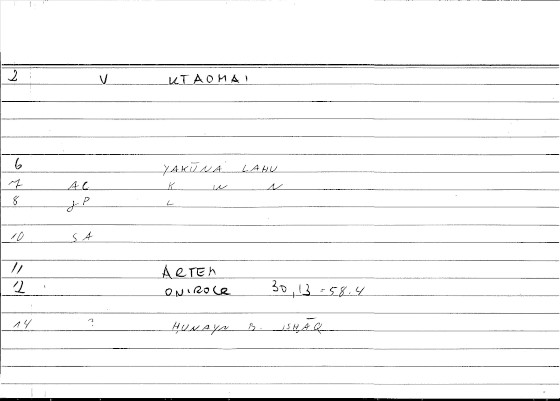 2 V KTAOMAI
6 YAKŪNA LAHU
7 AC K W N
8 gP L
10 SA
11 ARTEM
12 ONIROCR 30,13 = 58.4
14 ? ḤUNAYN B. ISḤĀQ